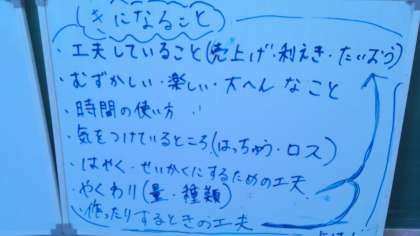 きになること
・工夫していること(売上げ・利えき・たいおう)
・むずかしい・楽しい・大へん なこと
・時間の使い方
・気をつけているところ(はっちゅう・ロス)
・はやく・せいかくにするための工夫
・やくわり(量・種類)
・作ったりするときの工夫